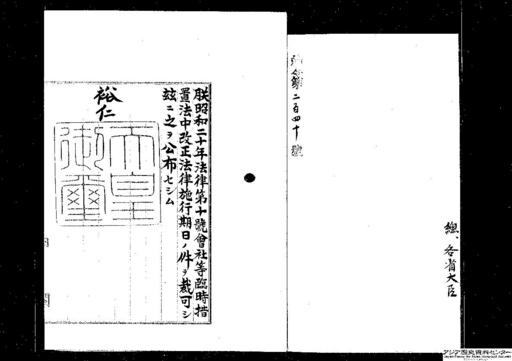 勅令第二百四十號
總、各省大臣
朕昭和二十年法律第十號會社等臨時措
置法中改正法律施行期日ノ件ヲ裁可シ
茲ニ之ヲ公布セシム
裕仁
天皇
御璽
アジア歴史資料センター